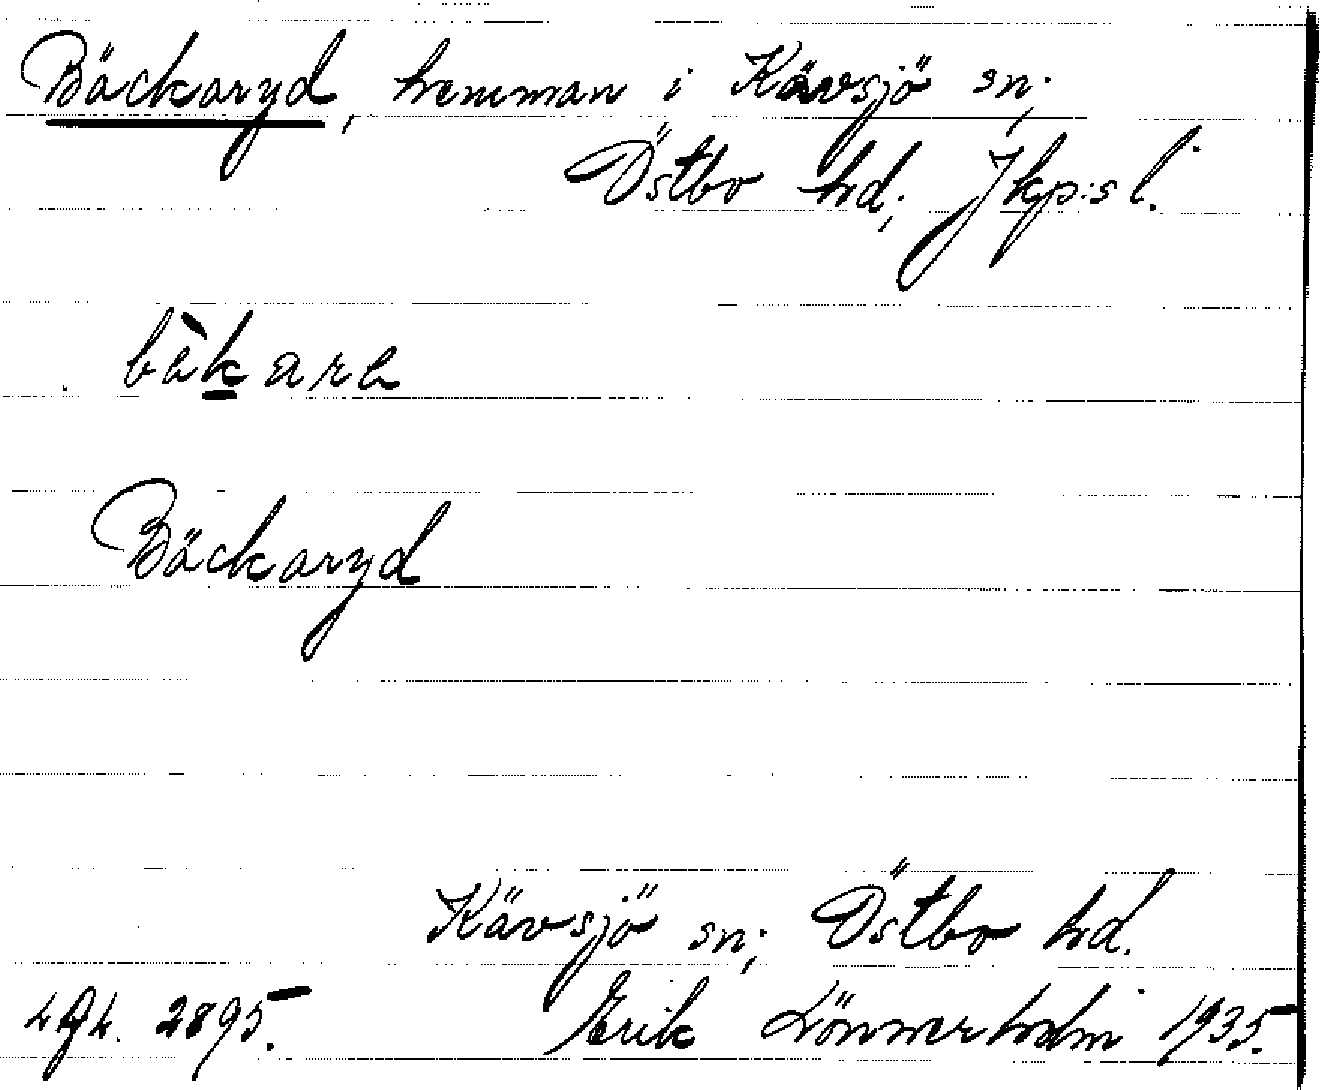 Bäckaryd, hemman i Kävsjö sn;
Östbo hd; Jkp:s l.
Bäckaryd
Kävsjö sn; Östbo hd.
2895. Erik Lönnerholm 1935.